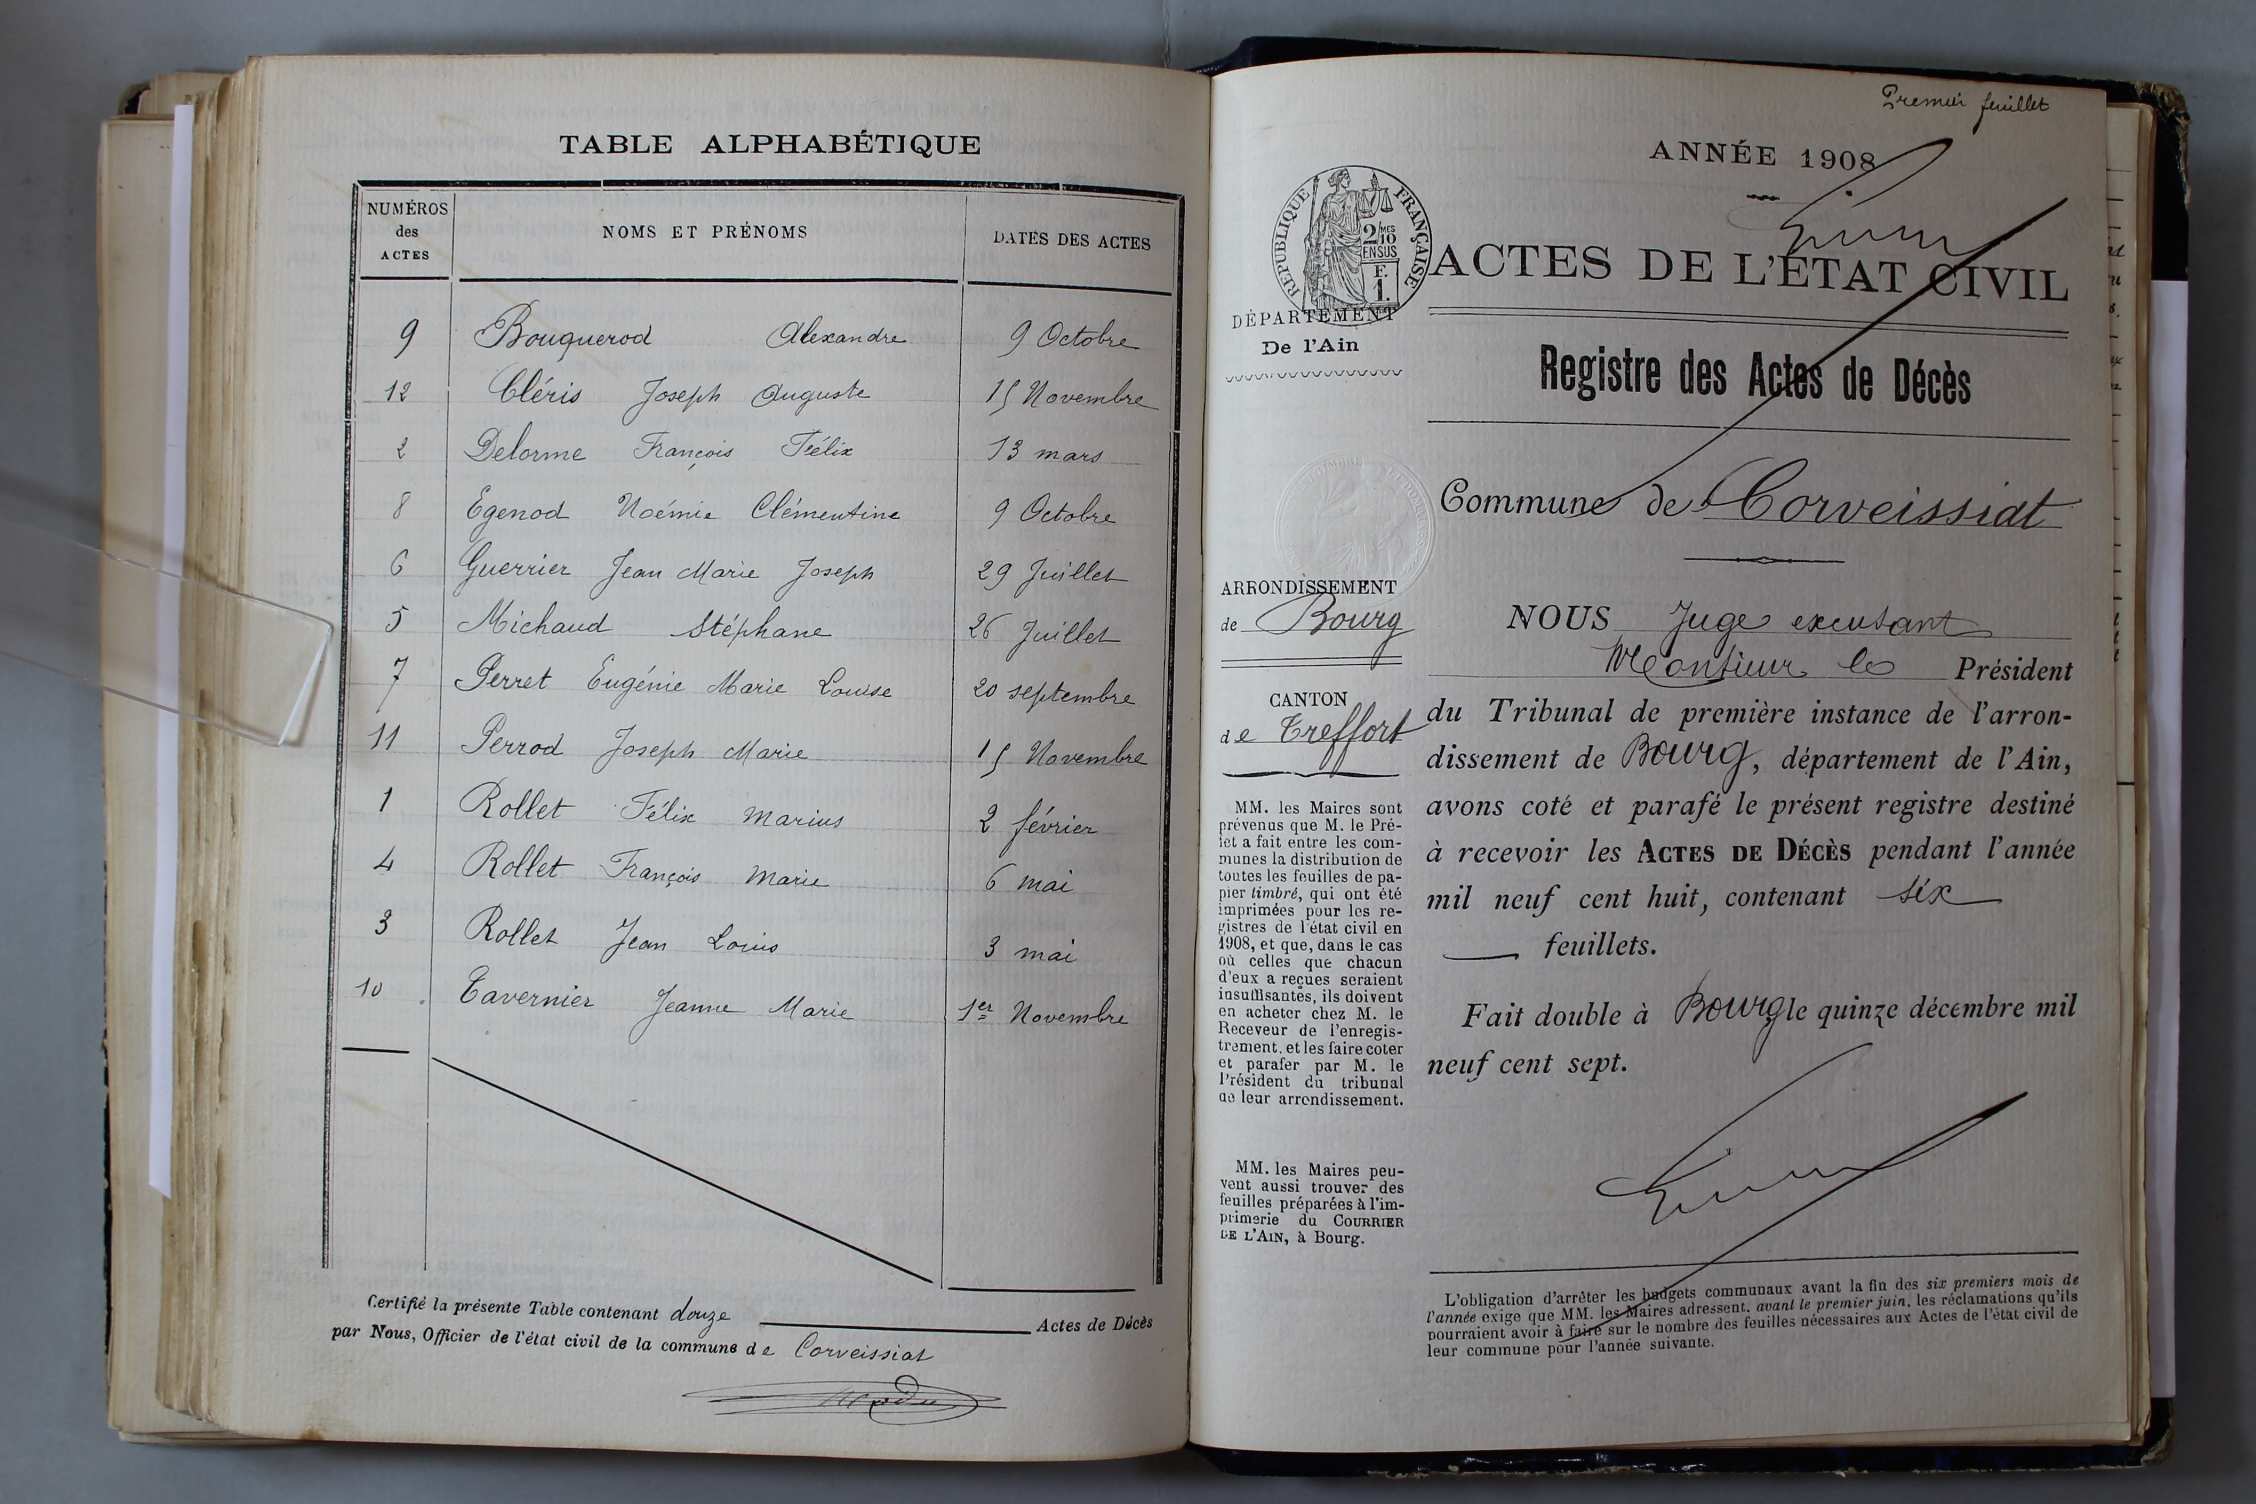 TABLE ALPHABÉTIQUE
NUMÉROS des ACTES NOMS ET PRÉNOMS DATES DES ACTES
9 Bouquerod Alexandre 9 Octobre
12 Cléris Joseph Auguste 15 Novembre
2 Delorme François Félix 13 mars
8 Egenod Noémie Clémentine 9 Octobre
6 Guerrier Jean Marie Joseph 29 Juillet
5 Michaud Stéphane 26 Juillet
7 Perret Eugénie Marie Louise 20 septembre
11 Perrod Joseph Marie 15 Novembre
1 Rollet Félix Marius 2 février
4 Rollet François Marie 6 mai
3 Rollet Jean Louis 3 mai
10 Tavernier Jeanne Marie 1er Novembre
Certifié la présente Table contenant douze Actes de Décès
par Nous, Officier de l'état civil de la commune de Corveissiat
Premier feuillet
ANNÉE 1908
RÉPUBLIQUE FRANÇAISE
2/10 MES
EN SUS
F.
1.
ACTES DE L'ÉTAT CIVIL
DÉPARTEMENT
De l'Ain
Registre des Actes de Décès
Commune de Corveissiat
ARRONDISSEMENT
de Bourg
CANTON
de Treffort
MM. les Maires sont
prévenus que M. le Pré-
fet a fait entre les com-
munes la distribution de
toutes les feuilles de pa-
pier timbré, qui ont été
imprimées pour les re-
gistres de l'état civil en
1908, et que, dans le cas
où celles que chacun
d'eux a reçues seraient
insuffisantes, ils doivent
en acheter chez M. le
Receveur de l'enregis-
trement, et les faire coter
et parafer par M. le
Président du tribunal
de leur arrondissement.
MM. les Maires peu-
vent aussi trouver des
feuilles préparées à l'im-
primerie du COURRIER
DE L'AIN, à Bourg.
NOUS Juge excusant
Monsieur le Président
du Tribunal de première instance de l'arron-
dissement de Bourg, département de l'Ain,
avons coté et parafé le présent registre destiné
à recevoir les ACTES DE DÉCÈS pendant l'année
mil neuf cent huit, contenant six
feuillets.
Fait double à Bourg le quinze décembre mil
neuf cent sept.
L'obligation d'arrêter les budgets communaux avant la fin des six premiers mois de
l'année exige que MM. les Maires adressent, avant le premier juin, les réclamations qu'ils
pourraient avoir à faire sur le nombre des feuilles nécessaires aux Actes de l'état civil de
leur commune pour l'année suivante.